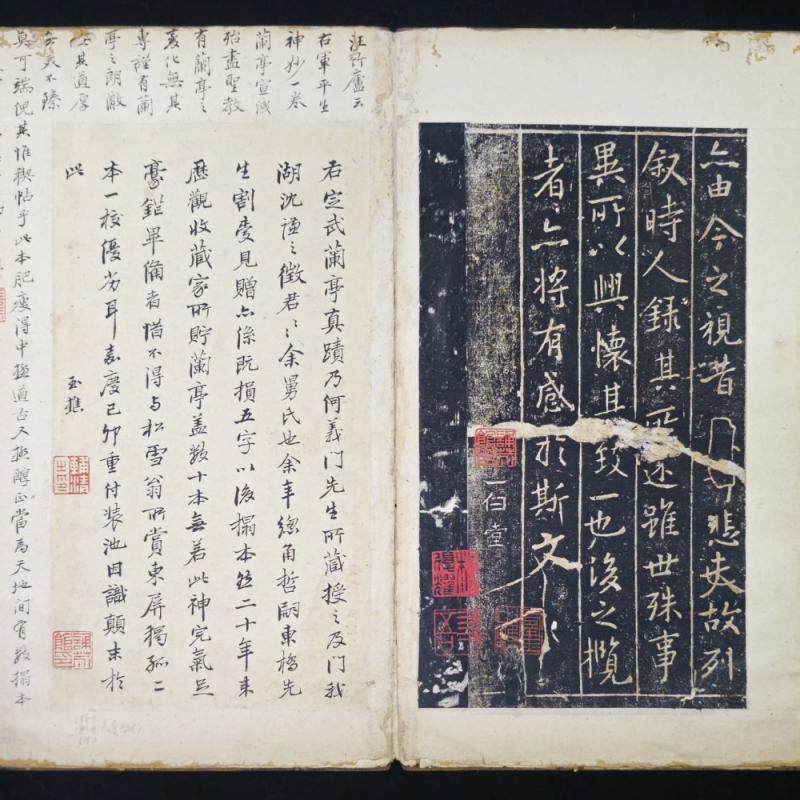 亦由今之視昔悲夫故列
叙時人録其所述雖世殊事
異所以興懷其致一也後之攬
者亦將有感於斯文
一百壹
汪竹廬云
右軍平生
神妙一卷
蘭亭宣洩
殆盡聖教
有蘭亭之
變化無其
專謹有蘭
亭之朗徹
其遒厚
美不臻
莫可端倪其惟禊帖乎此本肥瘦得中極遒古又極醇正當為天地間有數搨本
右定武蘭亭真蹟乃何義門先生所藏授之及門我
湖沈謹之徵君之余舅氏也余年總角哲嗣東橋先
生割愛見贈亦係既損五字以後搨本然二十年來
歷觀收藏家所貯蘭亭蓋數十本無若此神完氣足
豪鑑畢備者惜不得与松雪翁所賞東屏獨孤二
本一校優劣耳嘉慶己卯重付裝池因識顛末於
此
玉樵